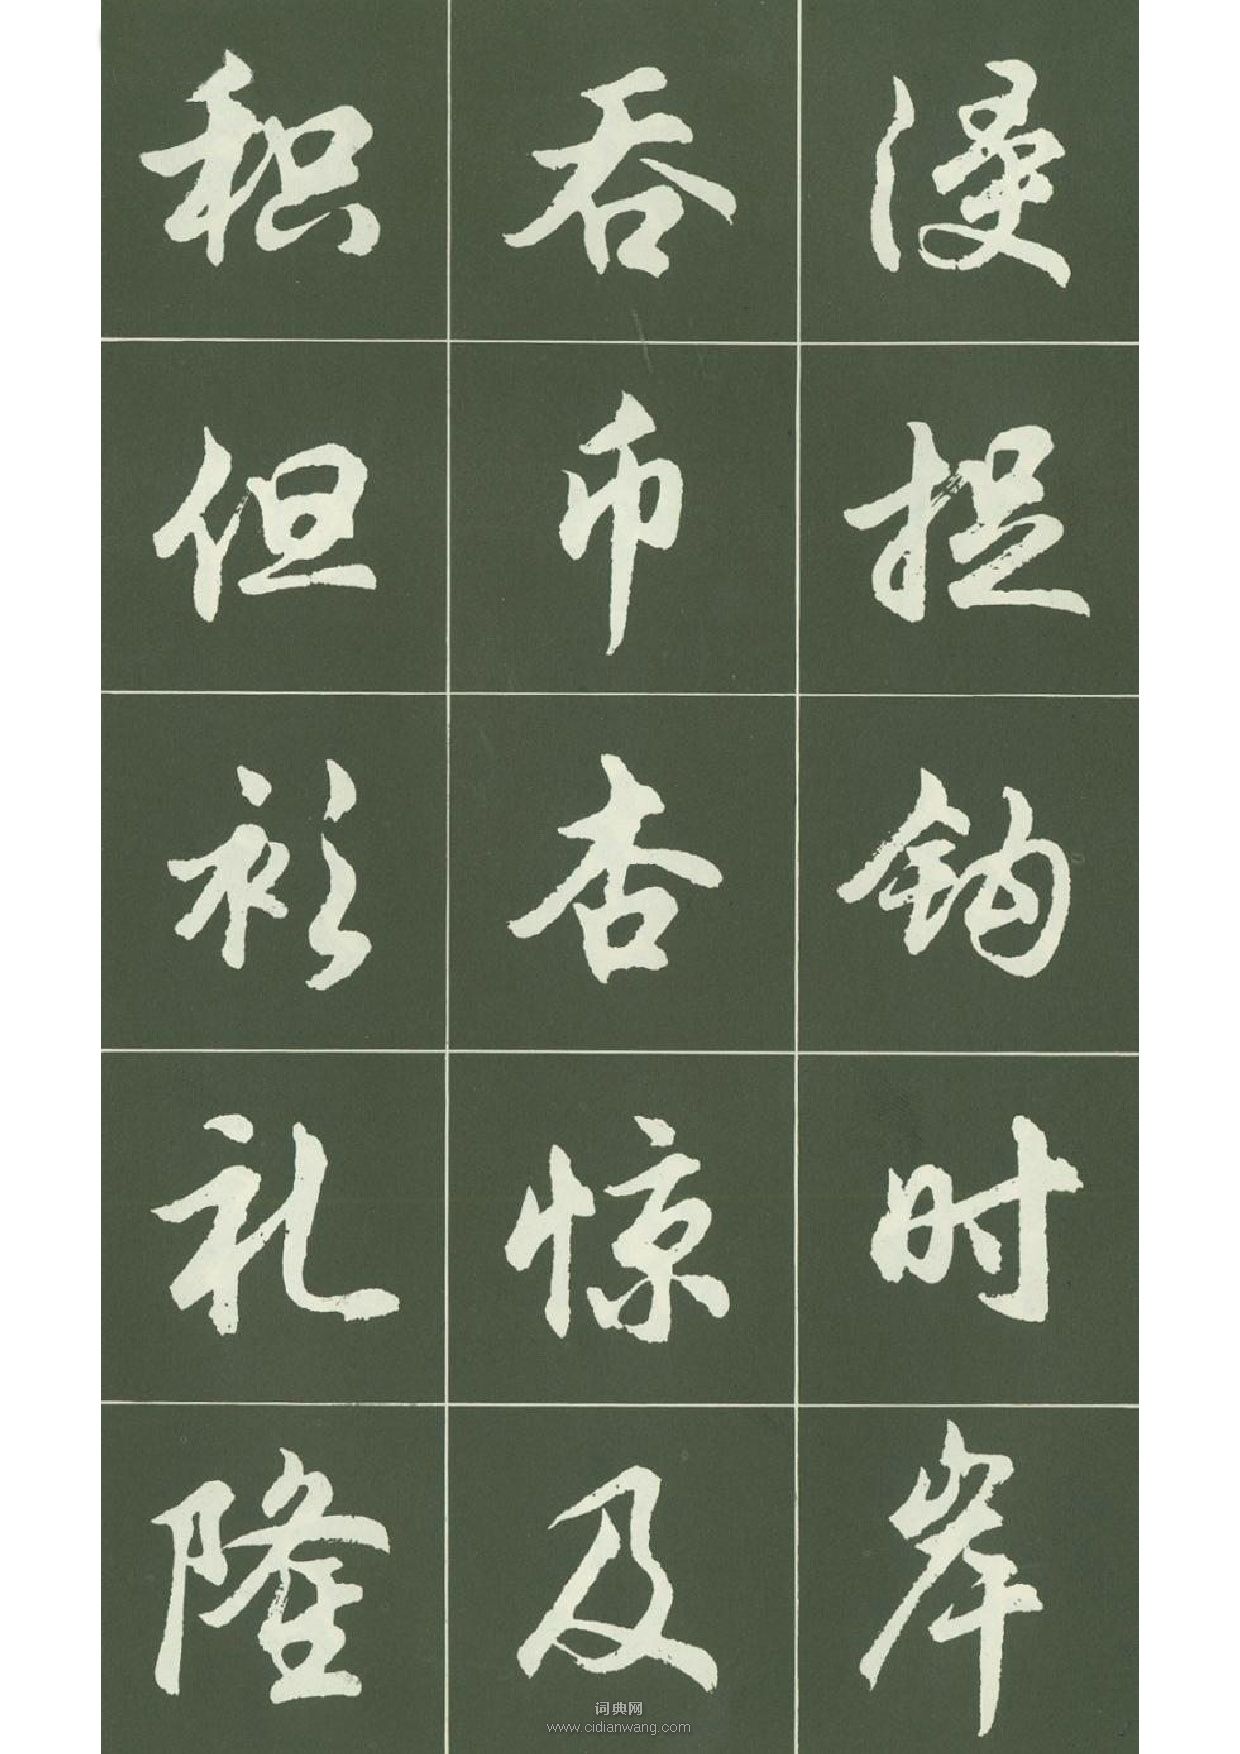 漫捉钩时岸
吞币杏惊及
积但衫礼隆
词典网
www.cidianwang.com